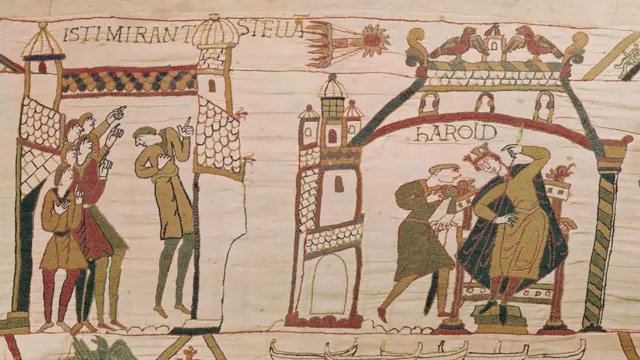 ISTI MIRANT STELLÃ
HAROLD